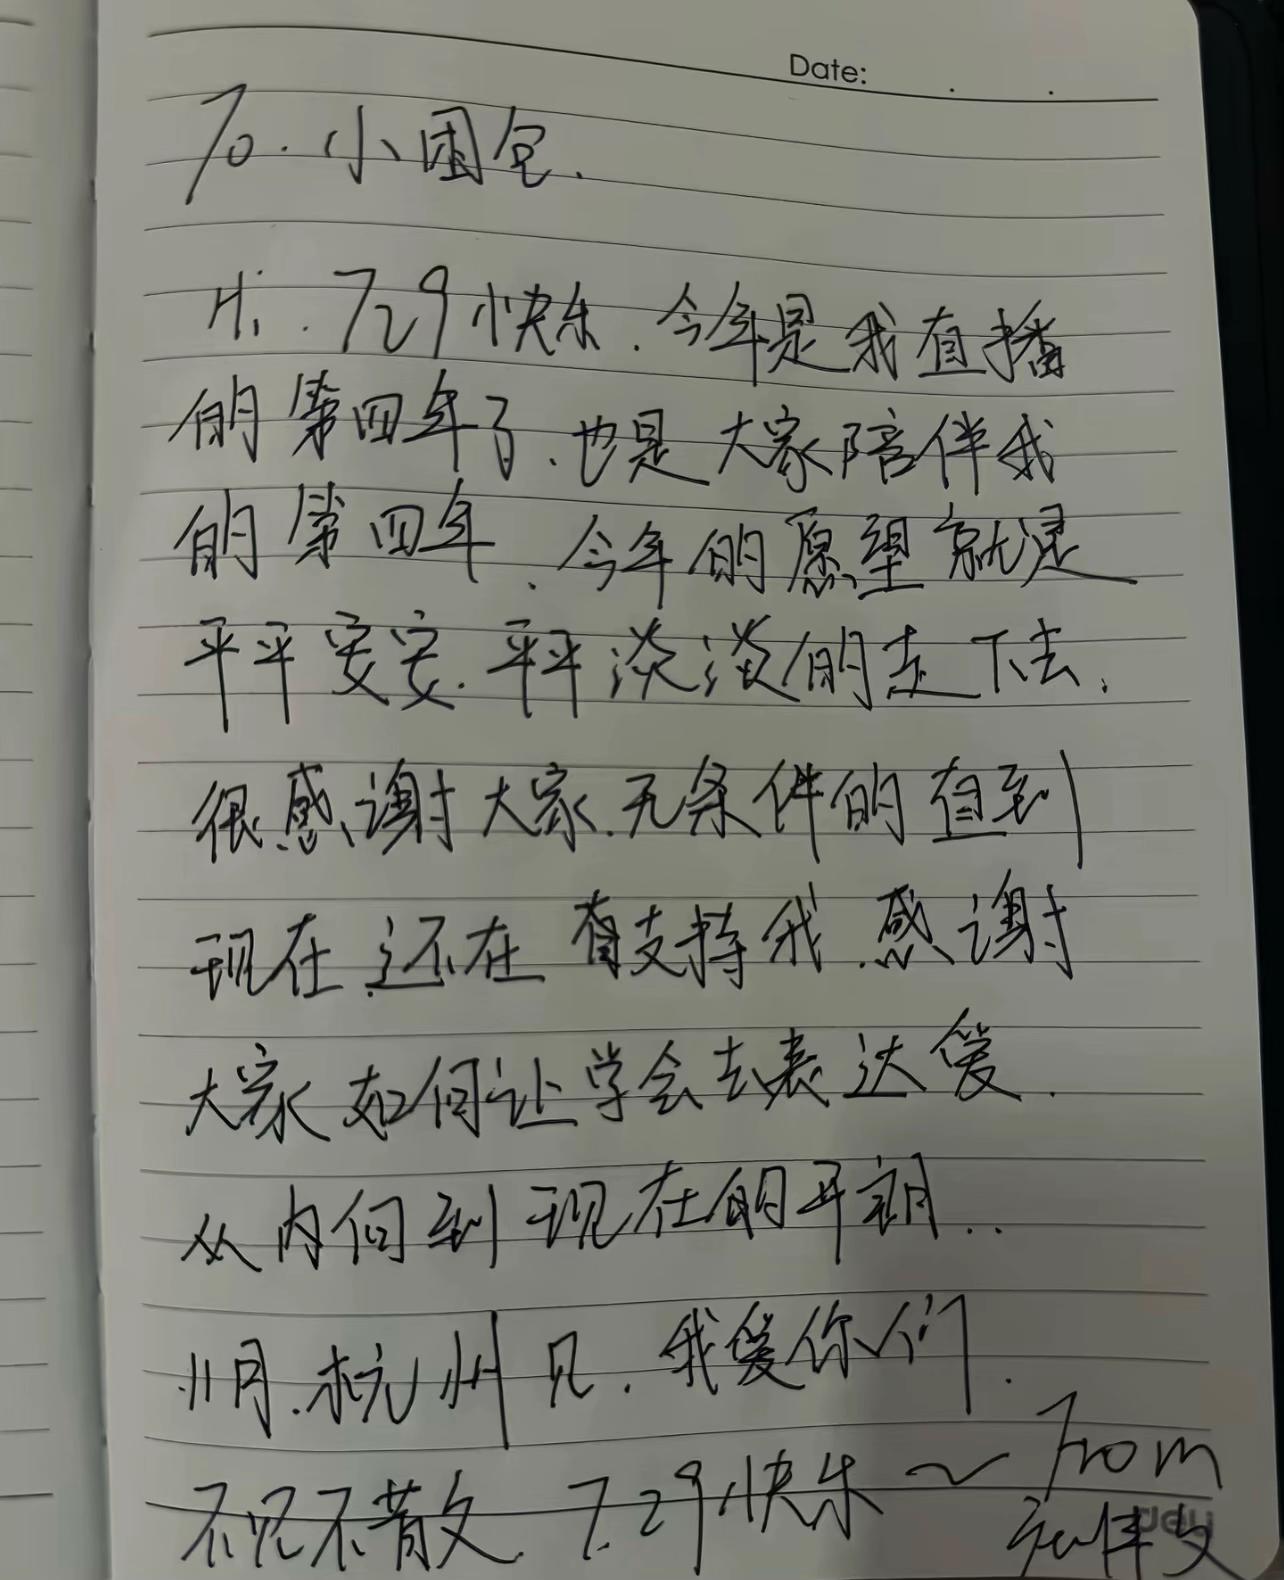 Date:
To. 小困包.
Hi. 729快乐.今年是我直播
的第四年了.也是大家陪伴我
的第四年.今年的愿望就是
平平安安.平平淡淡的走下去.
很感谢大家.无条件的直到
现在还在有支持我.感谢
大家如何让学会去表达爱.
从内向到现在的开朗..
11月.杭州见.我爱你们.
不见不散. 7.29快乐~ From
deli